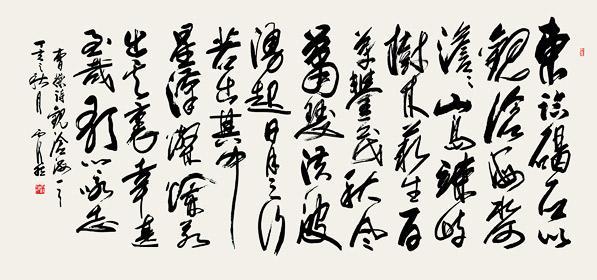 東臨碣石以
觀滄海水何
澹澹山島竦峙
樹木叢生百
草豐茂秋風
蕭瑟洪波
湧起日月之行
若出其中
星漢燦爛若
出其裏幸甚
至哉歌以詠志
曹操詩觀滄海一
秋月